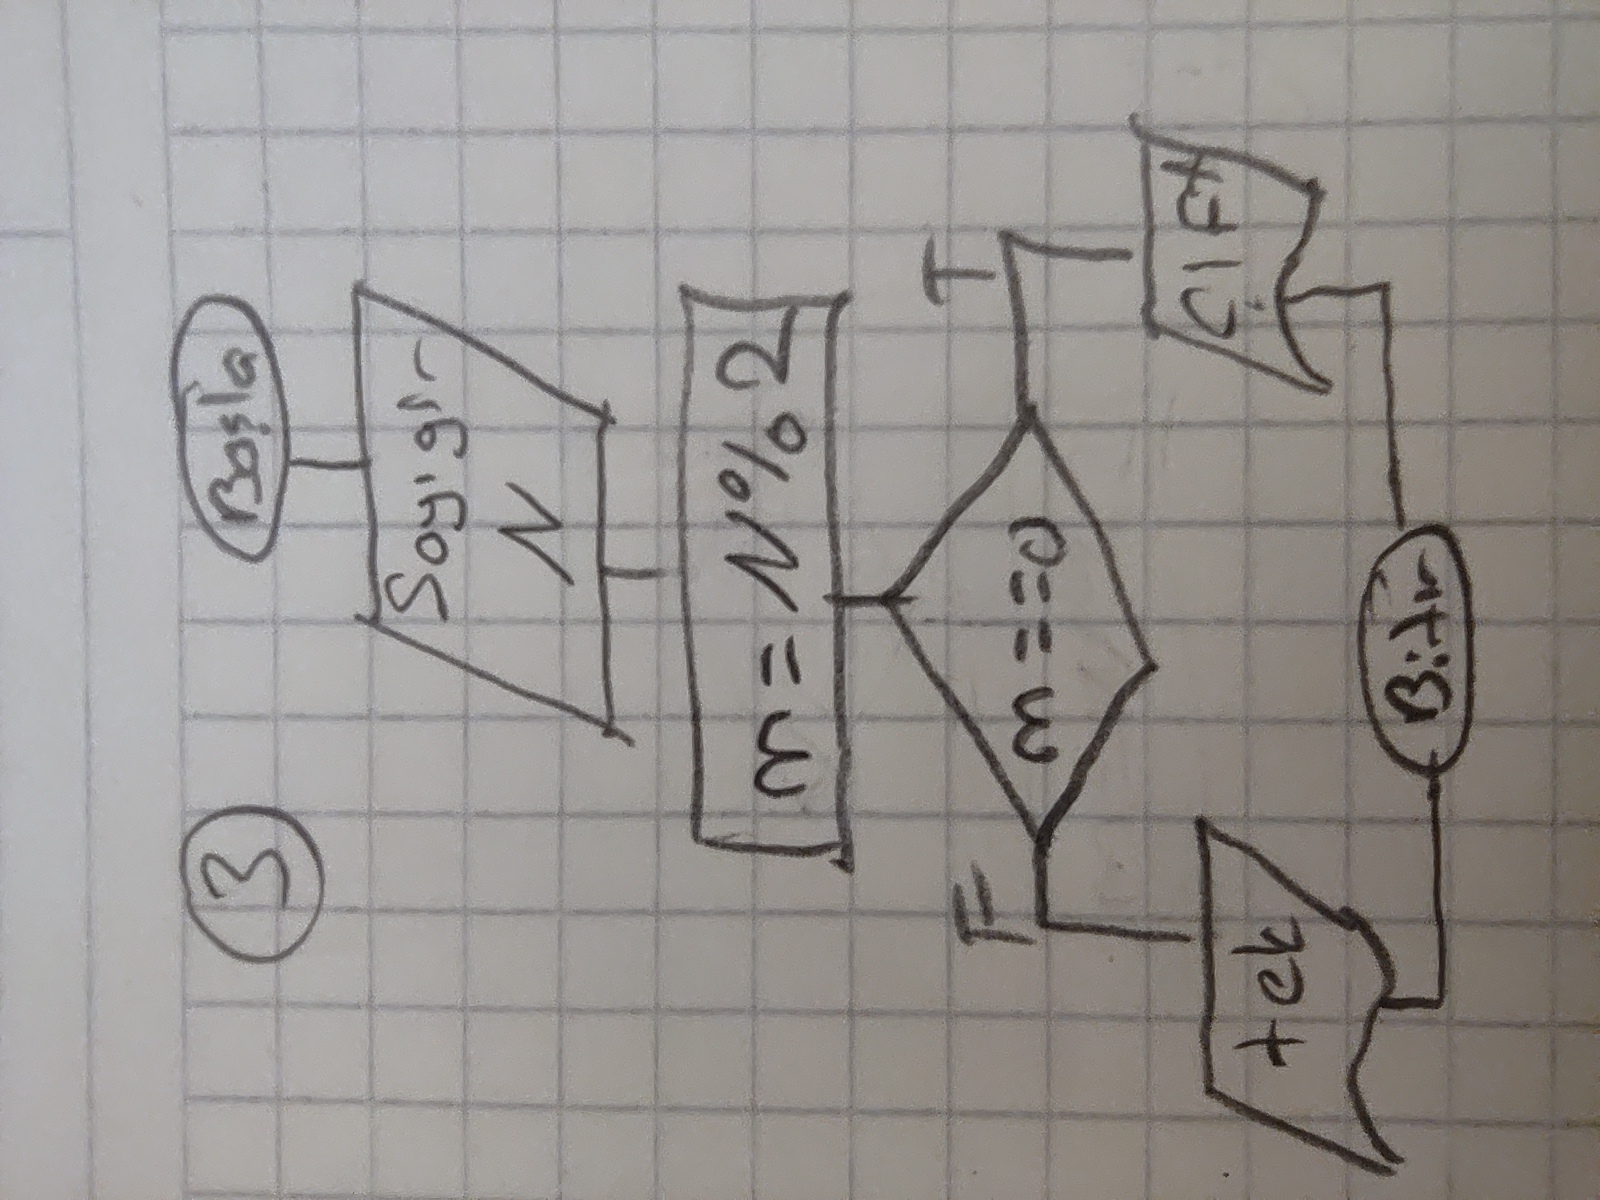 3
Başla
Sayı gir
N
m = N % 2
F
T
m == 0
tek
Çift
Bitir